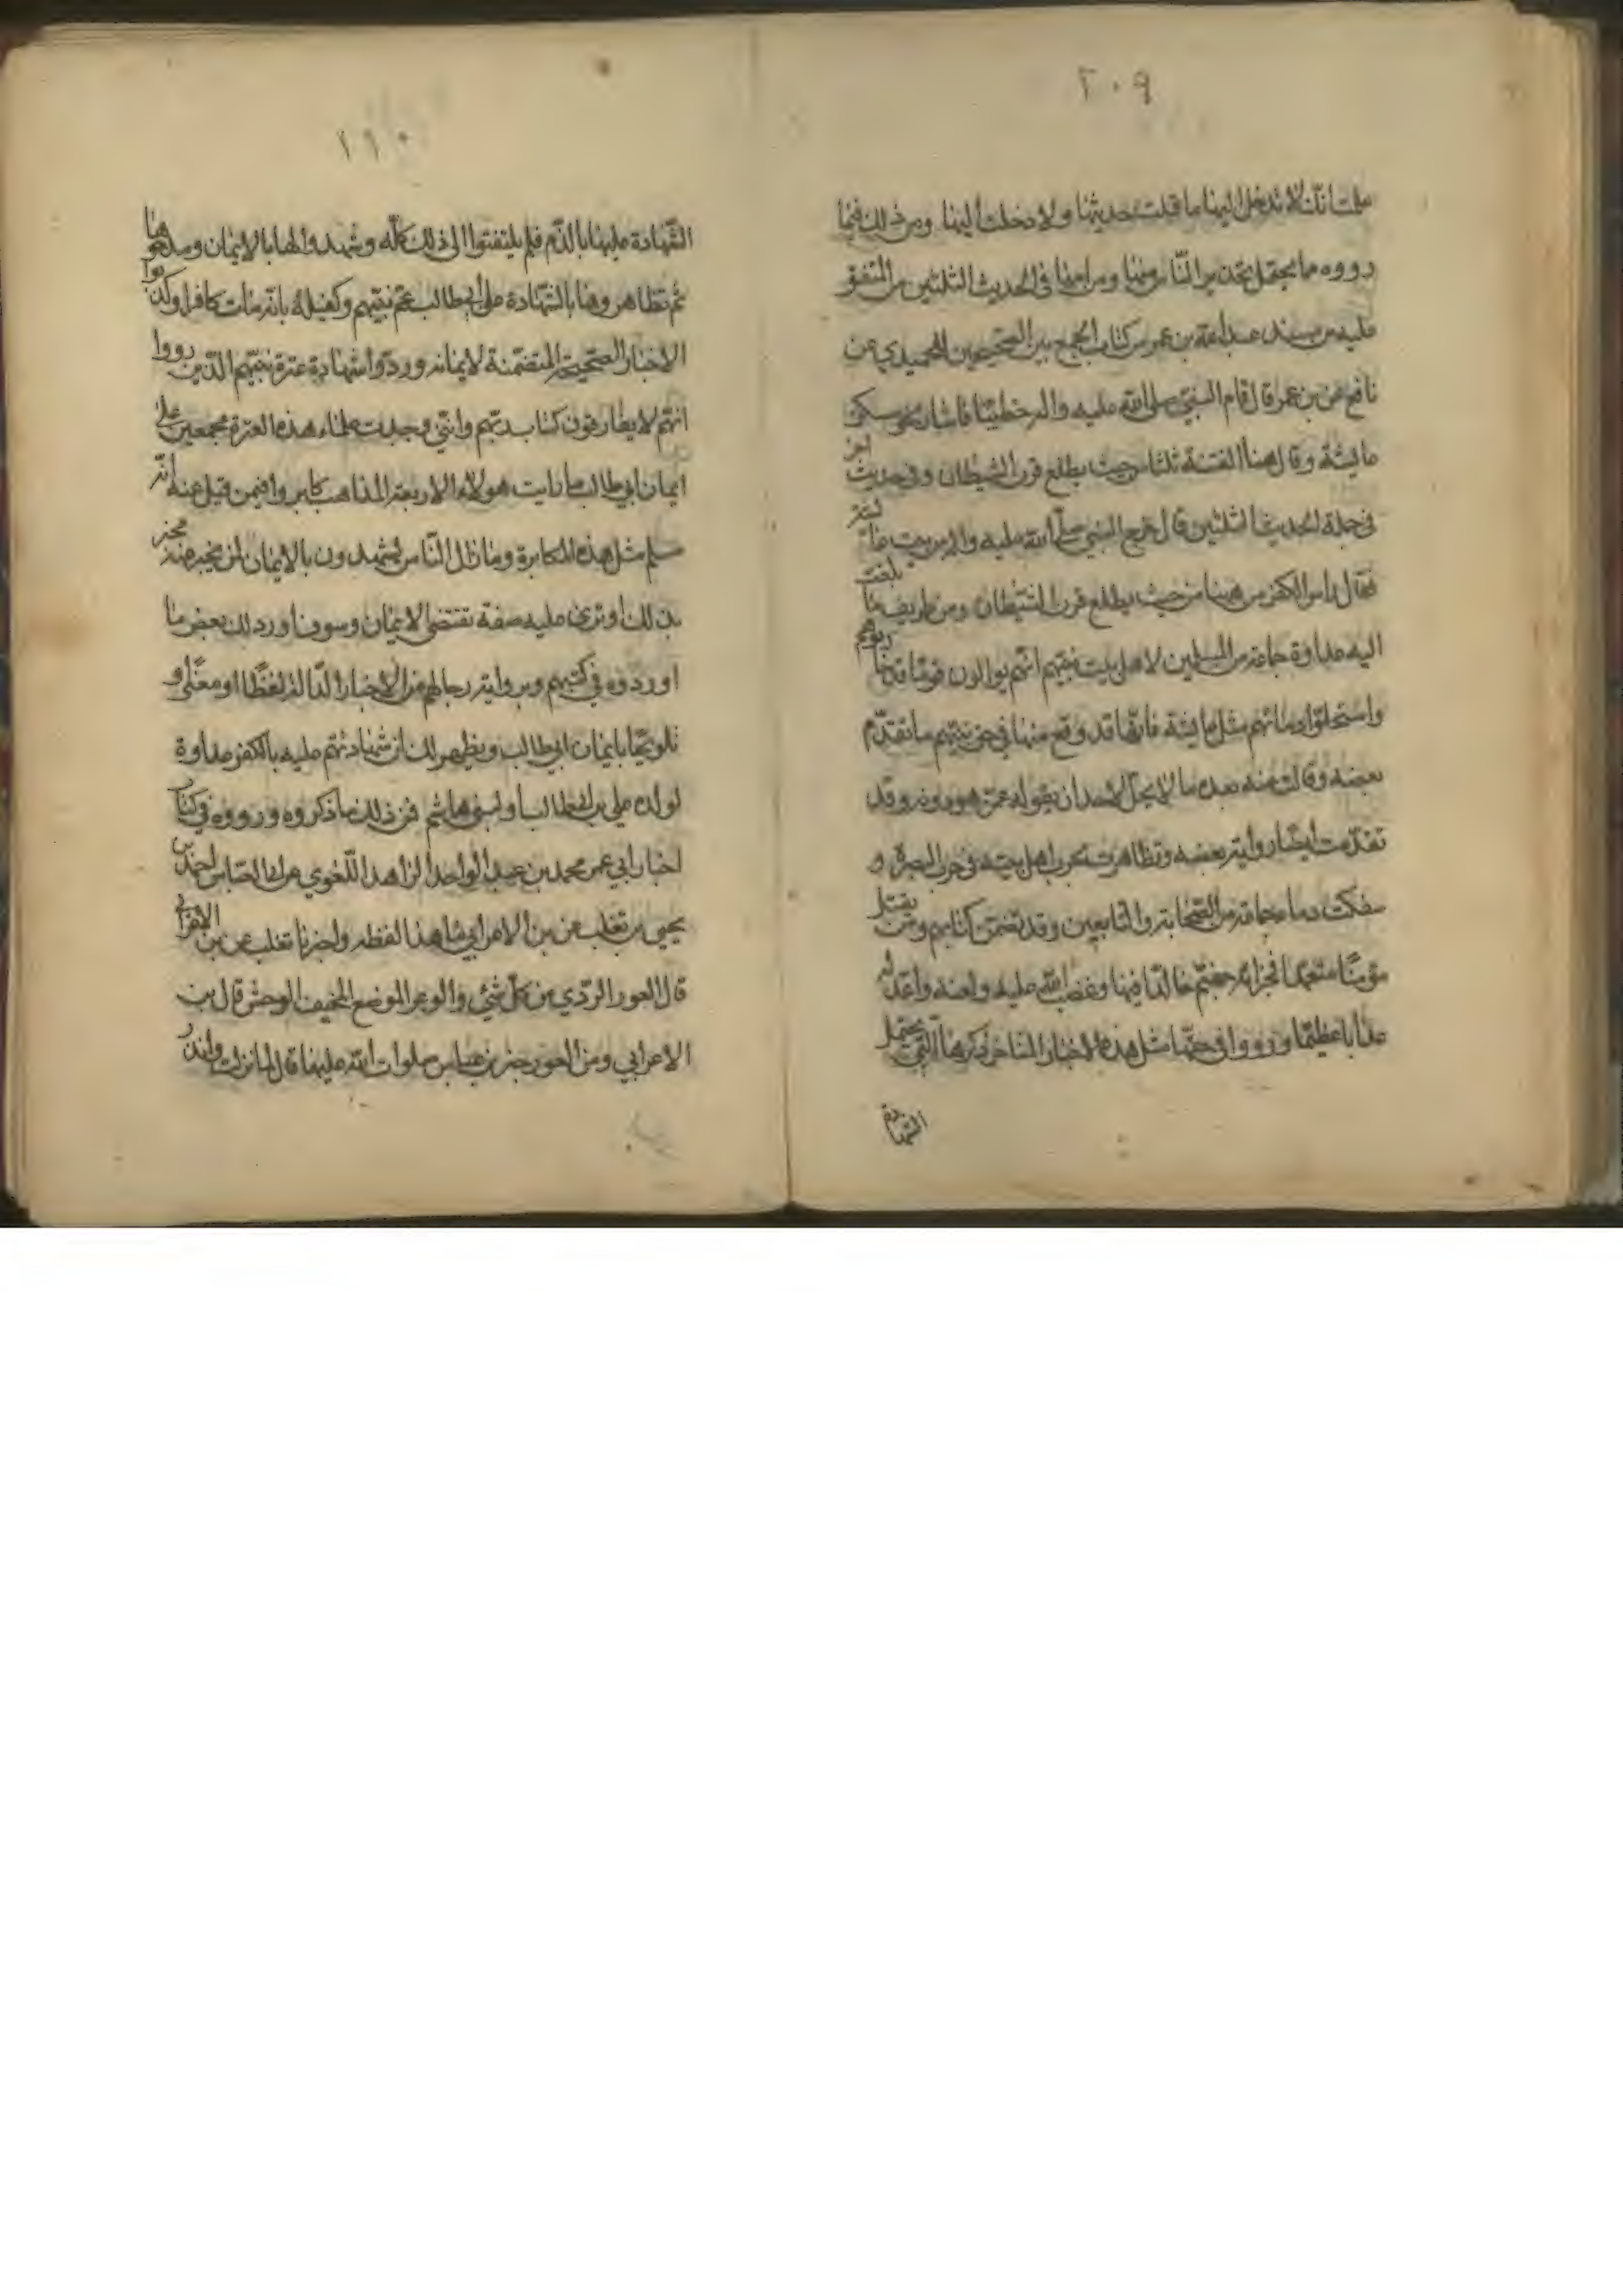 ٢٠٩
علمت انك لا تدخل اليها ما قبلت حديثها ولا دخلت اليها ومن ذلك فيما
رووه مما يحتمل تحذير الناس منها ومن امها في الحديث الثلثين من المتفق
عليه من مسند عبد الله بن عمر من كتاب الجمع بين الصحيحين للحميدي عن
نافع عن بن عمر قال قام النبي صلى الله عليه واله خطيبا فاشار نحو سكن
عايشة وقال هنا الفتنة ثلثا من حيث يطلع قرن الشيطان وفي حديث اخر
في جملة الحديث الثلثين قال خرج النبي صلى الله عليه واله من بيت عايشة
فقال راس الكفر من هيهنا من حيث يطلع قرن الشيطان ومن طريف ما بلغت
اليه عداوة جماعة من المسلمين لاهل بيت نبيهم انهم يوالون قوما قد
واستحلوا دمائهم مثل عايشة فانها قد وقع منها في حق نبيهم ما تقدم
بعضه وقالت عنه بعده ما لا يحل لاحد ان يقوله عمن هو دونه وقد
تقدمت ايضا روايتهم بعضه وتظاهرت بحرب اهل بيته في حرب البصرة و
سفكت دماء جماعة من الصحابة والتابعين وقد تضمن كتابهم ومن يقتل
مؤمنا متعمدا فجزائه جهنم خالدا فيها وغضب الله عليه ولعنه واعد له
عذابا عظيما ورووا في حقها مثل هذه الاخبار المتاخر ذكرها التي يحتمل
الشهادة
١١٠
الشهادة عليها بالذم فلم يلتفتوا الى ذلك كله وشهدوا لها بالايمان ومدحوها
ثم تظاهروها بالشهادة على ابي طالب عم نبيهم وكفيله بانه مات كافرا وكذبوا
الاخبار الصحيحة المتضمنة لايمانه وردوا شهادة عترة نبيهم الذين رووا
انهم لا يفارقون كتاب ربهم وانني وجدت علماء هذه العترة مجمعين على
ايمان ابي طالب ما رايت هولاء الاربعة المذاهب كابروا فيمن قيل عنه انه
مسلم مثل هذه المكابرة وما زال الناس يشهدون بالايمان لمن يخبر عنه مخبر
بذلك او ترى عليه صفة تقتضى الايمان وسوف اورد لك بعض ما
اوردوه في كتبهم وبرواية رجالهم من الاخبار الدالة لفظا او معنى او
تلويحا بايمان ابي طالب ويظهر لك ان شهادتهم عليه بالكفر عداوة
لولده علي بن ابيطالب او لبنى هاشم فمن ذلك ما ذكروه ورووه في كتاب
اخبار ابي عمر محمد بن عبد الواحد الزاهد اللغوي عن ابي العباس احمد بن
يحيى بن تغلب عن بن الاعرابي ما هذا لفظه واخبرنا تغلب عن بن الاعرابي
قال العور الردي من كل شئ والوعر الموضع المخيف الوحش قال بن
الاعرابي ومن العور خبر بن عباس صلوات الله عليهما قال لما نزلت وانذر